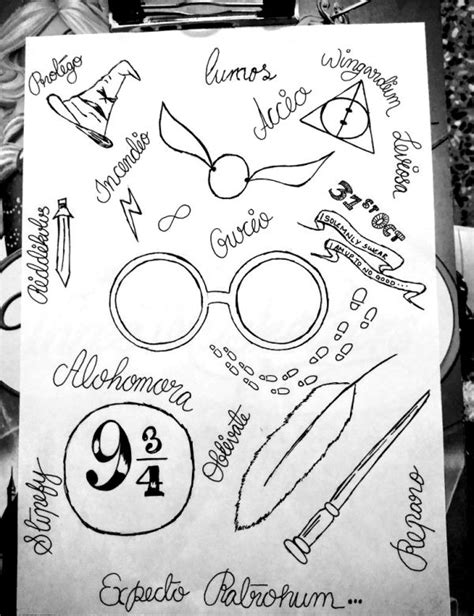 Protego
lumos
Wingardium
Leviosa
Accio
Incendio
31st OCT
I SOLEMNLY SWEAR
I AM UP TO NO GOOD...
Riddikulus
Alohomora
9 3/4
Obliviate
Stupefy
Reparo
Expecto Patronum...